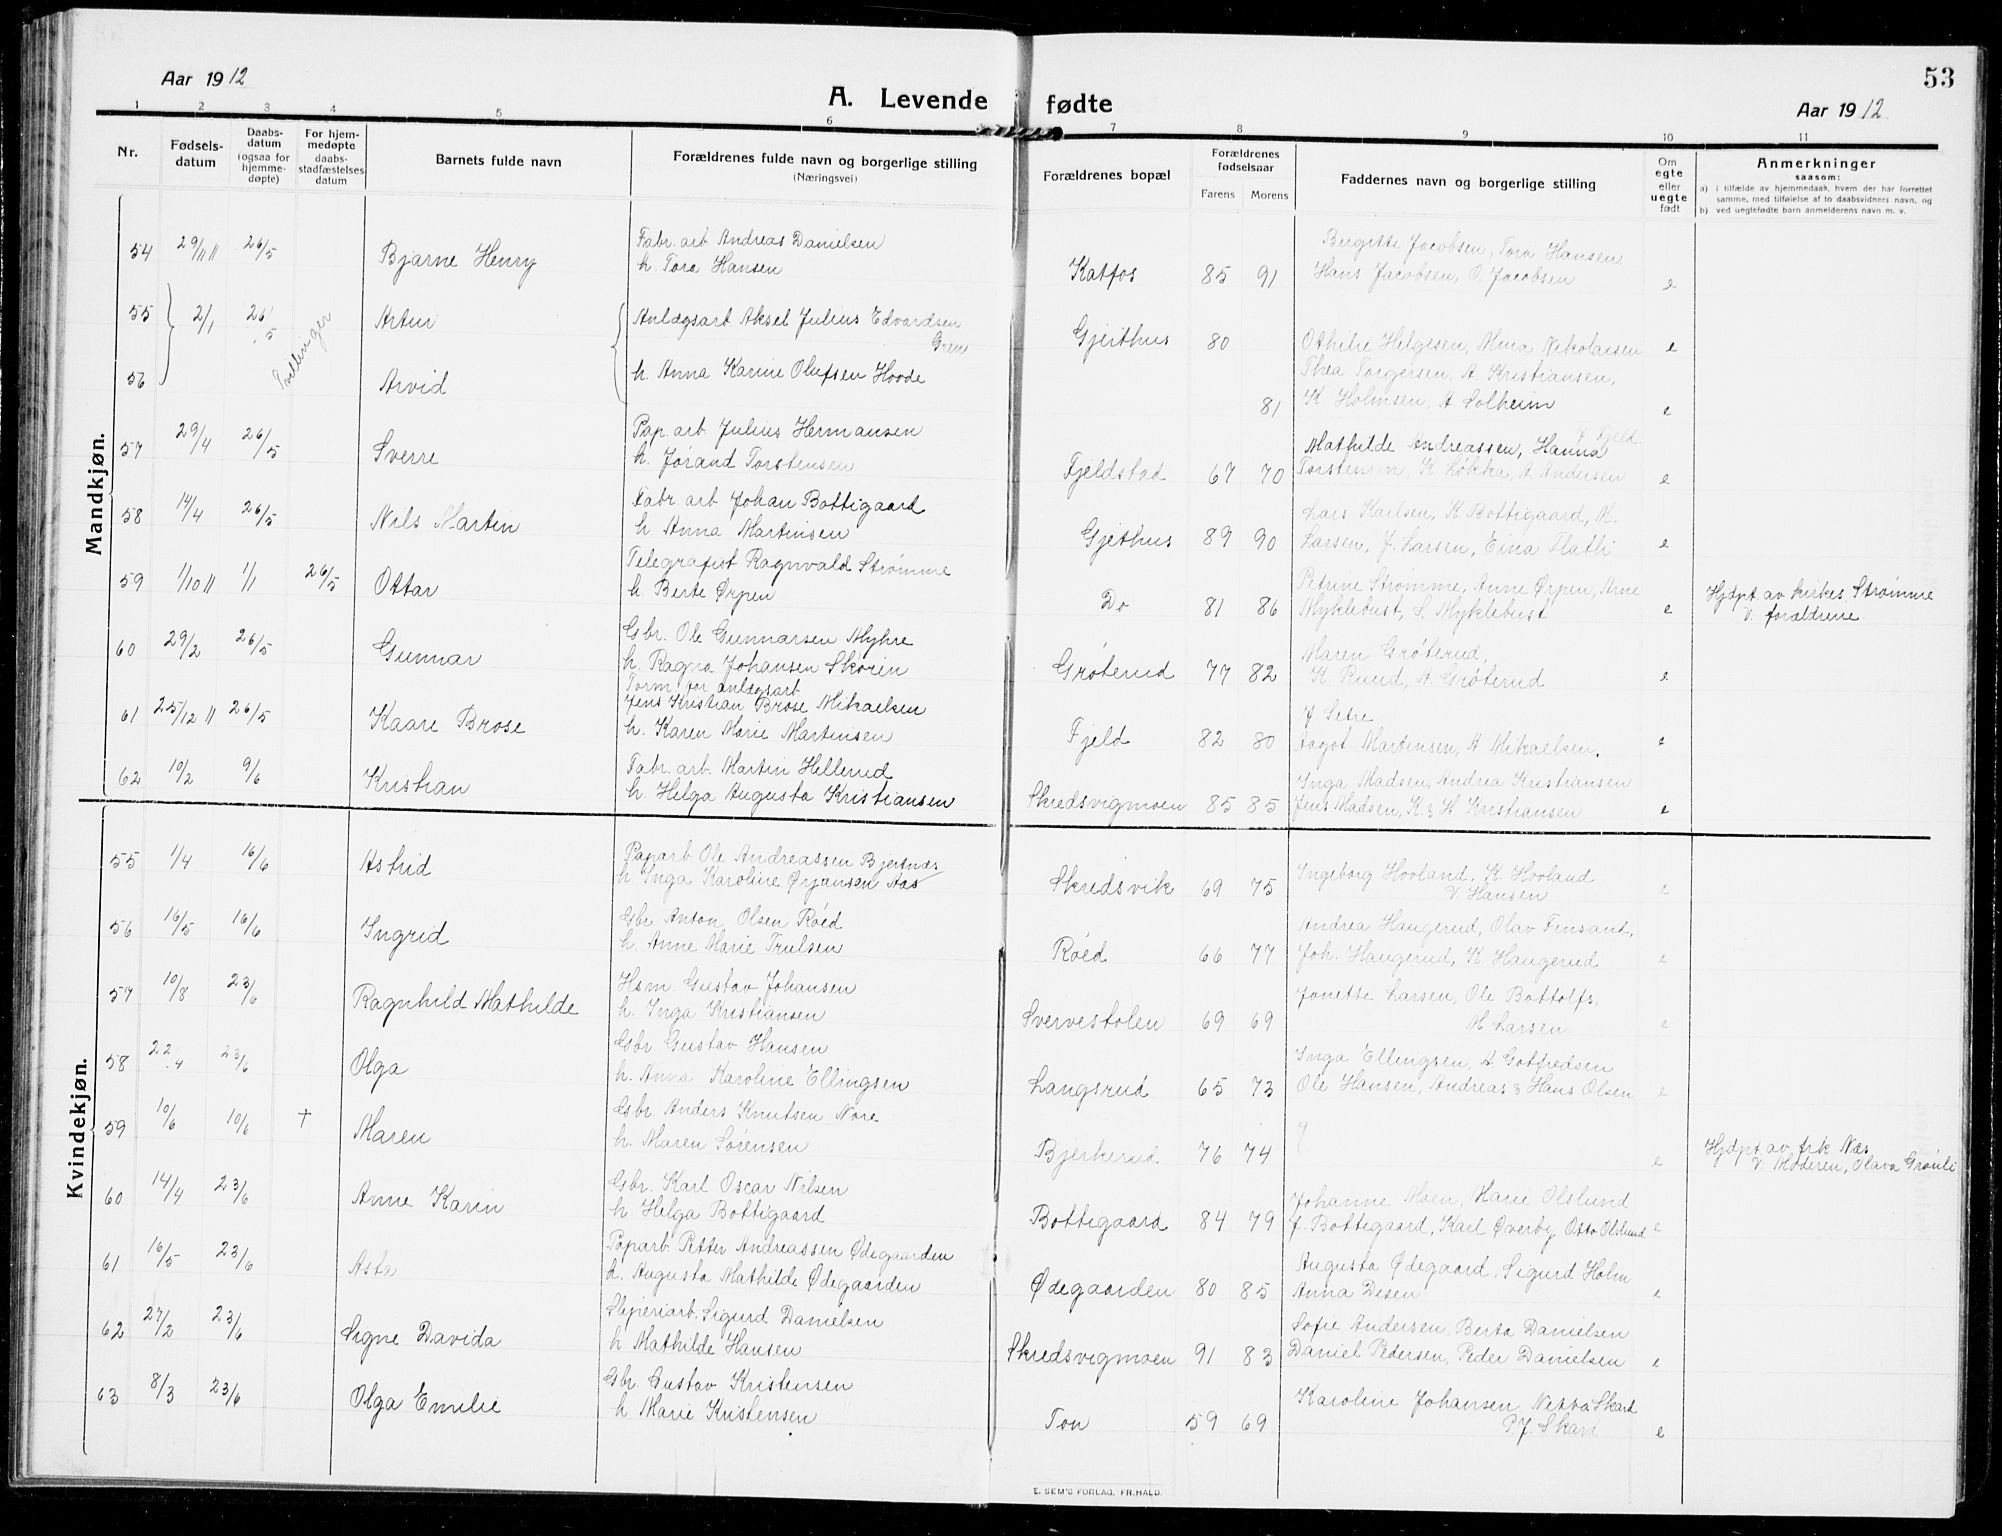 53
Aar 1912
A. Levende fødte
Aar 1912
1 2 3 4 5 6 7 8 9 10 11
Nr.
Fødsels-
datum
Daabs-
datum
(ogsaa for
hjemme-
døpte)
For hjem-
medøpte
daabs-
stadfæstelses
datum
Barnets fulde navn
Forældrenes fulde navn og borgerlige stilling
(Næringsvei)
Forældrenes bopæl
Forældrenes
fødselsaar
Farens Morens
Faddernes navn og borgerlige stilling
Om
egte
eller
uegte
født
Anmerkninger
saasom:
a) i tilfælde av hjemmedaab, hvem der har forrettet
samme, med tilføielse af to daabsvidners navn, og
b) ved uegtefødte barn anmelderens navn m. v.
Mandkjøn.
54 29/11 11 26/5 Bjarne Henry
Fabr. arb Andreas Danielsen
h. Tora Hansen
Katfos 85 91
Birgitte Jacobsen, Tora Hansen
Hans Jacobsen, O. Jacobsen e
55 2/1 26/5 Artur
Tvillinger
Anlægsarb Aksel Julius Edvardsen
Gren
Gjeithus 80
Othilie Helgesen, Mina Nikolaisen e
56 Arvid
h. Anna Karine Olufsen Hovde
81
Thea Torgersen, A. Kristiansen,
K Holmsen, A Solheim e
57 29/4 26/5 Sverre
Pap. arb. Julius Hermansen
h. Jørand Torstensen
Fjeldstad 67 70
Mathilde Andreassen, Hanna
Torstensen, K Løkka, A Andersen e
58 14/4 26/5 Nils Martin
Fabr arb Johan Bottigaard
h. Anna Martinsen
Gjethus 89 90
Lars Karlsen, K Bottigaard, M.
Larsen, J. Larsen, Eina Flathi e
59 1/10 11 1/1 26/5 Ottar
Telegrafist Ragnvald Strømme
h. Berte Ørpen
Do 81 86
Petrine Strømme, Anne Ørpen, Arne
Myklebust, S. Myklebust e
Hjdpt av kirkes. Strømme
V. forældrene
60 29/2 26/5 Gunnar
Gbr. Ole Gunnarsen Myhre
h. Ragna Johansen Skorin
Grøterud 77 82
Maren Grøterud,
K. Ruud, A. Grøterud e
61 25/12 11 26/5 Kaare Brose
Form. for anlægsarb
Jens Kristian Brose Mikaelsen
h. Karen Marie Martinsen
Fjeld 82 80
J Setre
Aagot Martinsen, A Mikaelsen. e
62 10/2 9/6 Kristian
Fabr. arb. Martin Hellerud
h. Helga Augusta Kristiansen
Skredsvigmoen 85 85
Inga Madsen, Andrea Kristiansen
Jens Madsen, K. & H Kristiansen e
Kvindekjøn.
55 1/4 16/6 Astrid
Paparb Ole Andreassen Bjertnæs
h. Inga Karoline Ørjansen Aas
Skredsvik 69 75
Ingeborg Hovland, K. Hovland
V. Hansen e
56 16/5 16/6 Ingrid
Gbr Anton Olsen Røed
h. Anne Marie Trulsen
Røed 66 77
Andrea Haugerud, Olav Finsand,
Joh. Haugerud, K Haugerud e
57 10/8 23/6 Ragnhild Mathilde
Hsm. Gustav Johansen
h. Inga Kristiansen
Svervestolen 69 69
Jonette Larsen, Ole Bottolfs,
M Larsen e
58 22/4 23/6 Olga
Gbr Gustav Hansen
h. Anna Karoline Ellingsen
Langsrud 65 73
Inga Ellingsen, A Gotfredsen
Ole Hansen, Andreas & Hans Olsen e
59 10/6 10/6 † Maren
Gbr Anders Knutsen Nore
h. Maren Sørensen
Bjerkerud 76 74 e
Hjdpt av frk Næs
V. Moderen, Olava Grønli
60 14/4 23/6 Anne Karin
Gbr. Karl Oscar Nilsen
h. Helga Bottigaard
Bottegaard 84 79
Johanne Moen, Marie Olslund
J. Bottegaard, Karl Øverby Otto Olslund e
61 16/5 23/6 Asta
Paparb. Petter Andreassen Ødegaarden
h. Augusta Mathilde Ødegaarden
Ødegaarden 80 85
Augusta Ødegaard, Sigurd Holm
Anna Desen e
62 27/2 23/6 Signe Davida
Sliperiarb. Sigurd Danielsen
h Mathilde Hansen
Skredsvigmoen 91 83
Sofie Andersen, Berta Danielsen
Daniel Pedersen, Peder Danielsen e
63 8/3 23/6 Olga Emilie
Gbr. Gustav Kristensen
h Marie Kristensen
Ton 59 69
Karoline Johansen, Netta Skard
P.J. Skard e
E. SEM'S FORLAG, FR.HALD.